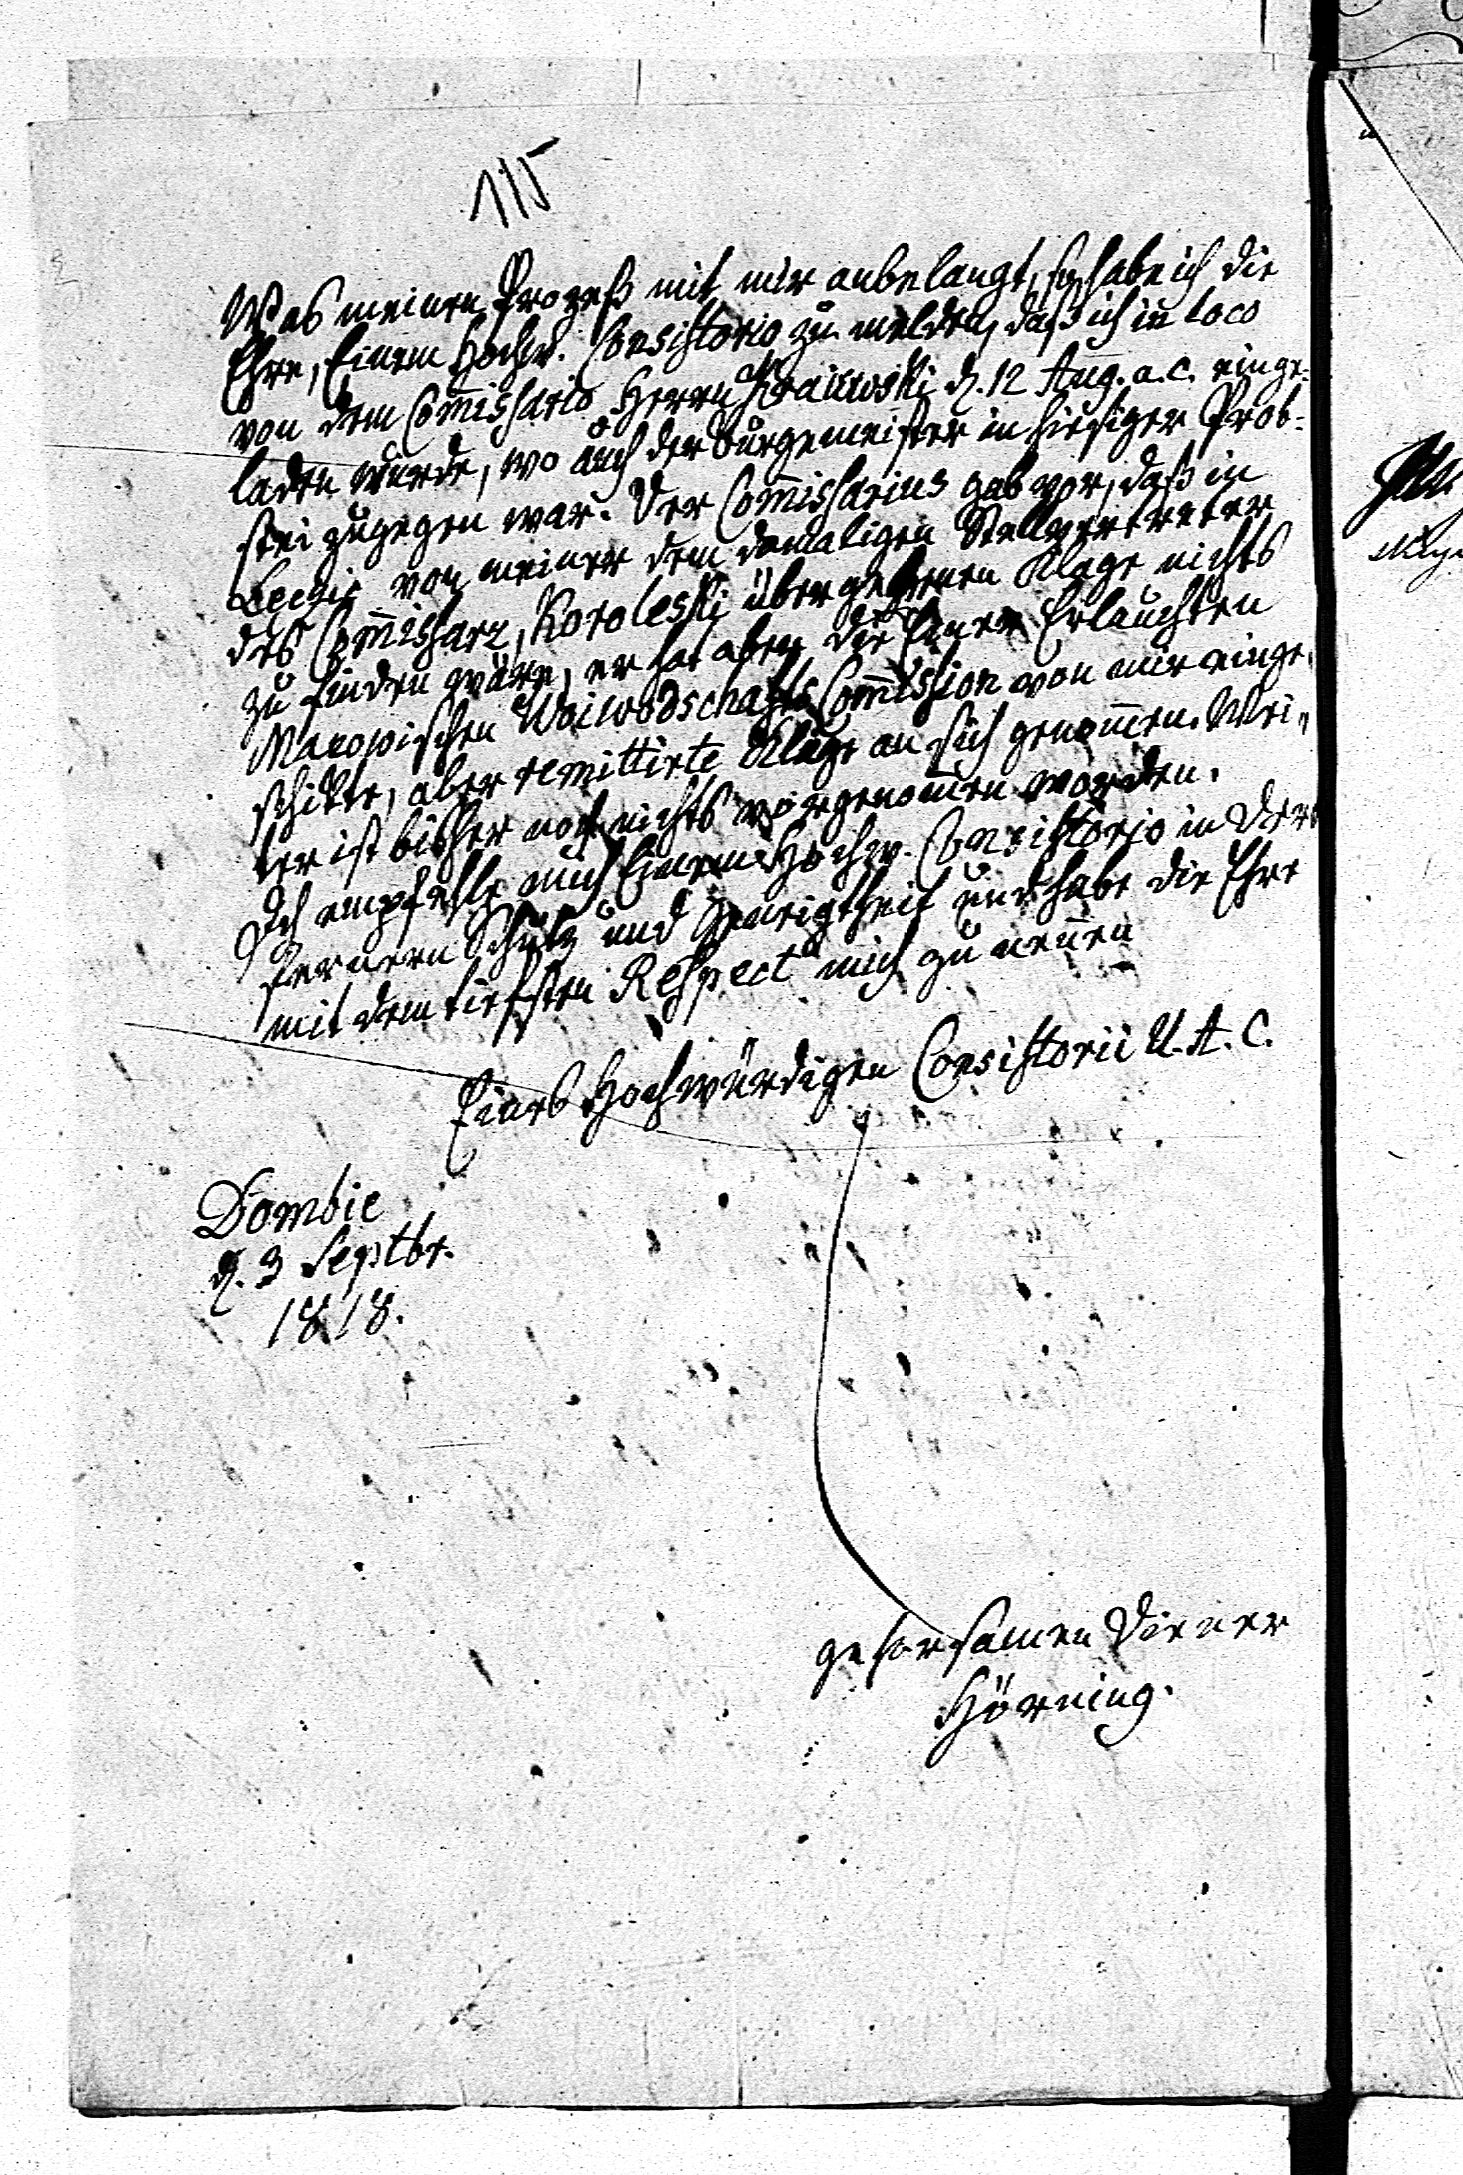 115
Was meinen Prozeß mit mir anbelangt, so habe ich die
Ehre, Einem Hochw. Consistorio zu melden, daß ich in Loco
von dem Com̅issario Herrn Kraiewski d. 12 Aug. a. c. einge-
laden wurde, wo auch der Burgemeister in hiesiger Prob-
stei zugegen war. Der Com̅issarius gab vor, daß in
von meiner dem damaligen Stellvertreter
des Com̅issarz, Koroleski übergebenen Klage nichts
zu finden wäre, er hat aber die Einer Erlauchten
Masowischen Woiwodschafts Com̅ission von mir einge-
schikte, aber remittirte Klage an sich genom̅en. Wei-
ter ist bisher noch nichts vorgenom̅en worden.
Ich empfehle mich Einem Hochw. Consistorio in Dero
fernern Schutz und Geneigtheit und habe die Ehre
mit dem tiefsten Respect mich zu nen̅en
Eines Hochwürdigen Consistorii U. A. C.
Dombie
d. 3 Septbr.
1818.
gehorsamen Diener
Hörning.